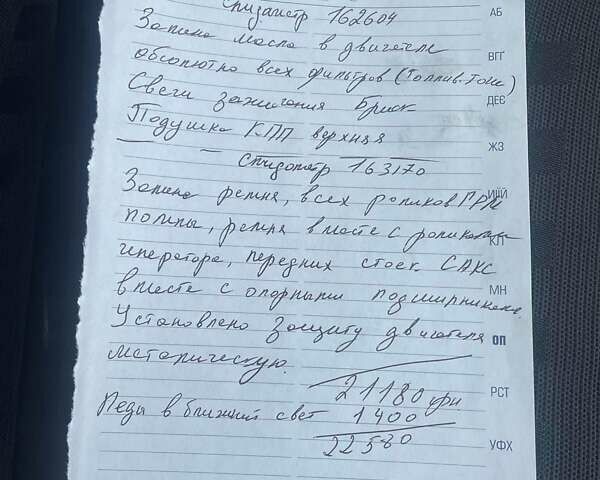 Спидометр 162604
АБ
Замена масла в двигателе
ВГҐ
абсолютно всех фильтров (Топлив. тоже)
ДЕЄ
Свечи зажигания Бриск
Подушка КПП верхняя
ЖЗ
— Спидометр 163170
Замена ремня, всех роликов ГРМ
ИІЙ
помпы, ремня вместе с роликами
КЛ
генератора, передних стоек САКС
МН
вместе с опорными подшипниками.
Установлено защиту двигателя
ОП
металическую.
21180 грн
РСТ
Леды в ближний свет 1400
22580
УФХ